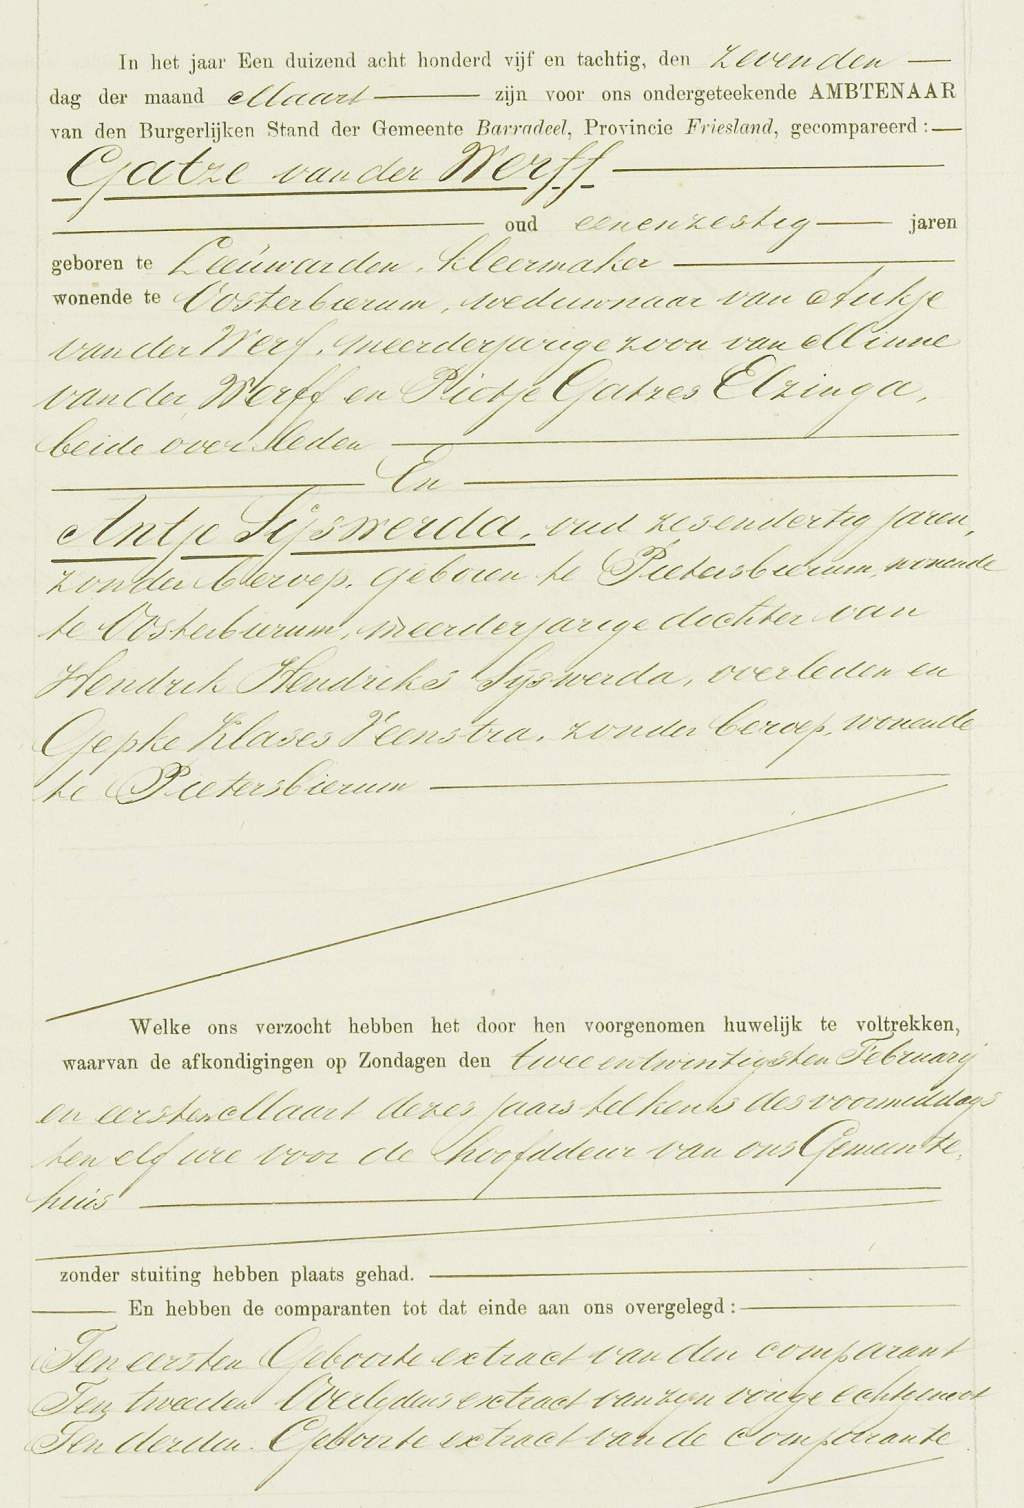 In het jaar Een duizend acht honderd vijf en tachtig, den zevenden
dag der maand Maart zijn voor ons ondergeteekende AMBTENAAR
van den Burgerlijken Stand der Gemeente Barradeel, Provincie Friesland, gecompareerd:
Gatze van der Werff
oud eenenzestig jaren
geboren te Leeuwarden, kleermaker
wonende te Oosterbierum, weduwnaar van Aukje
van der Werf, meerderjarige zoon van Minne
van der Werff en Pietje Gatzes Elzinga,
beide overleden
En
Antje Sijswerda, oud zesendertig jaren,
zonder beroep, geboren te Pietersbierum, wonende
te Oosterbierum, meerderjarige dochter van
Hendrik Hendriks Sijswerda, overleden en
Gepke Klases Veenstra, zonder beroep, wonende
te Pietersbierum
Welke ons verzocht hebben het door hen voorgenomen huwelijk te voltrekken,
waarvan de afkondigingen op Zondagen den tweeentwintigsten Februarij
en eersten Maart dezes jaars telkens des voormiddags
ten elf ure voor de hoofddeur van ons Gemeente-
huis
zonder stuiting hebben plaats gehad.
En hebben de comparanten tot dat einde aan ons overgelegd:
Ten eersten Geboorte extract van den comparant
Ten tweeden Overlijdens extract van zijn vorige echtgenoot
Ten derden Geboorte extract van de comparante